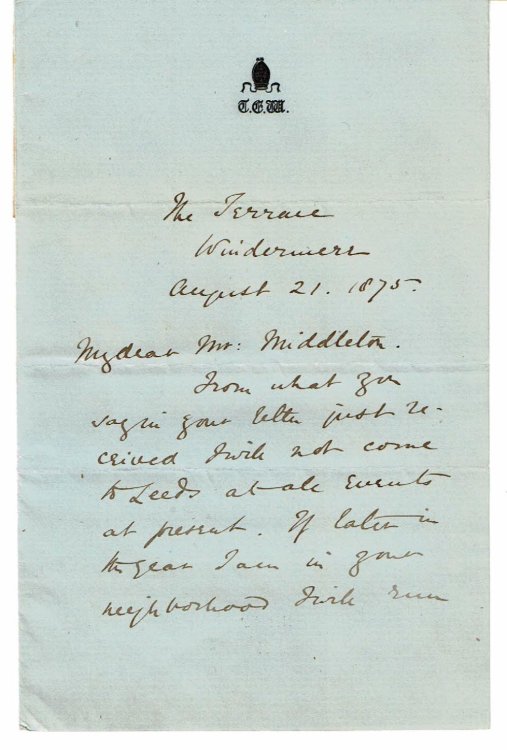 T.E.W.
The Terrace
Windermere
August 21. 1875.
My dear Mr: Middleton.
From what you
say in your letter just re-
ceived I will not come
to Leeds at all events
at present. If later in
the year I am in your
neighborhood I will run